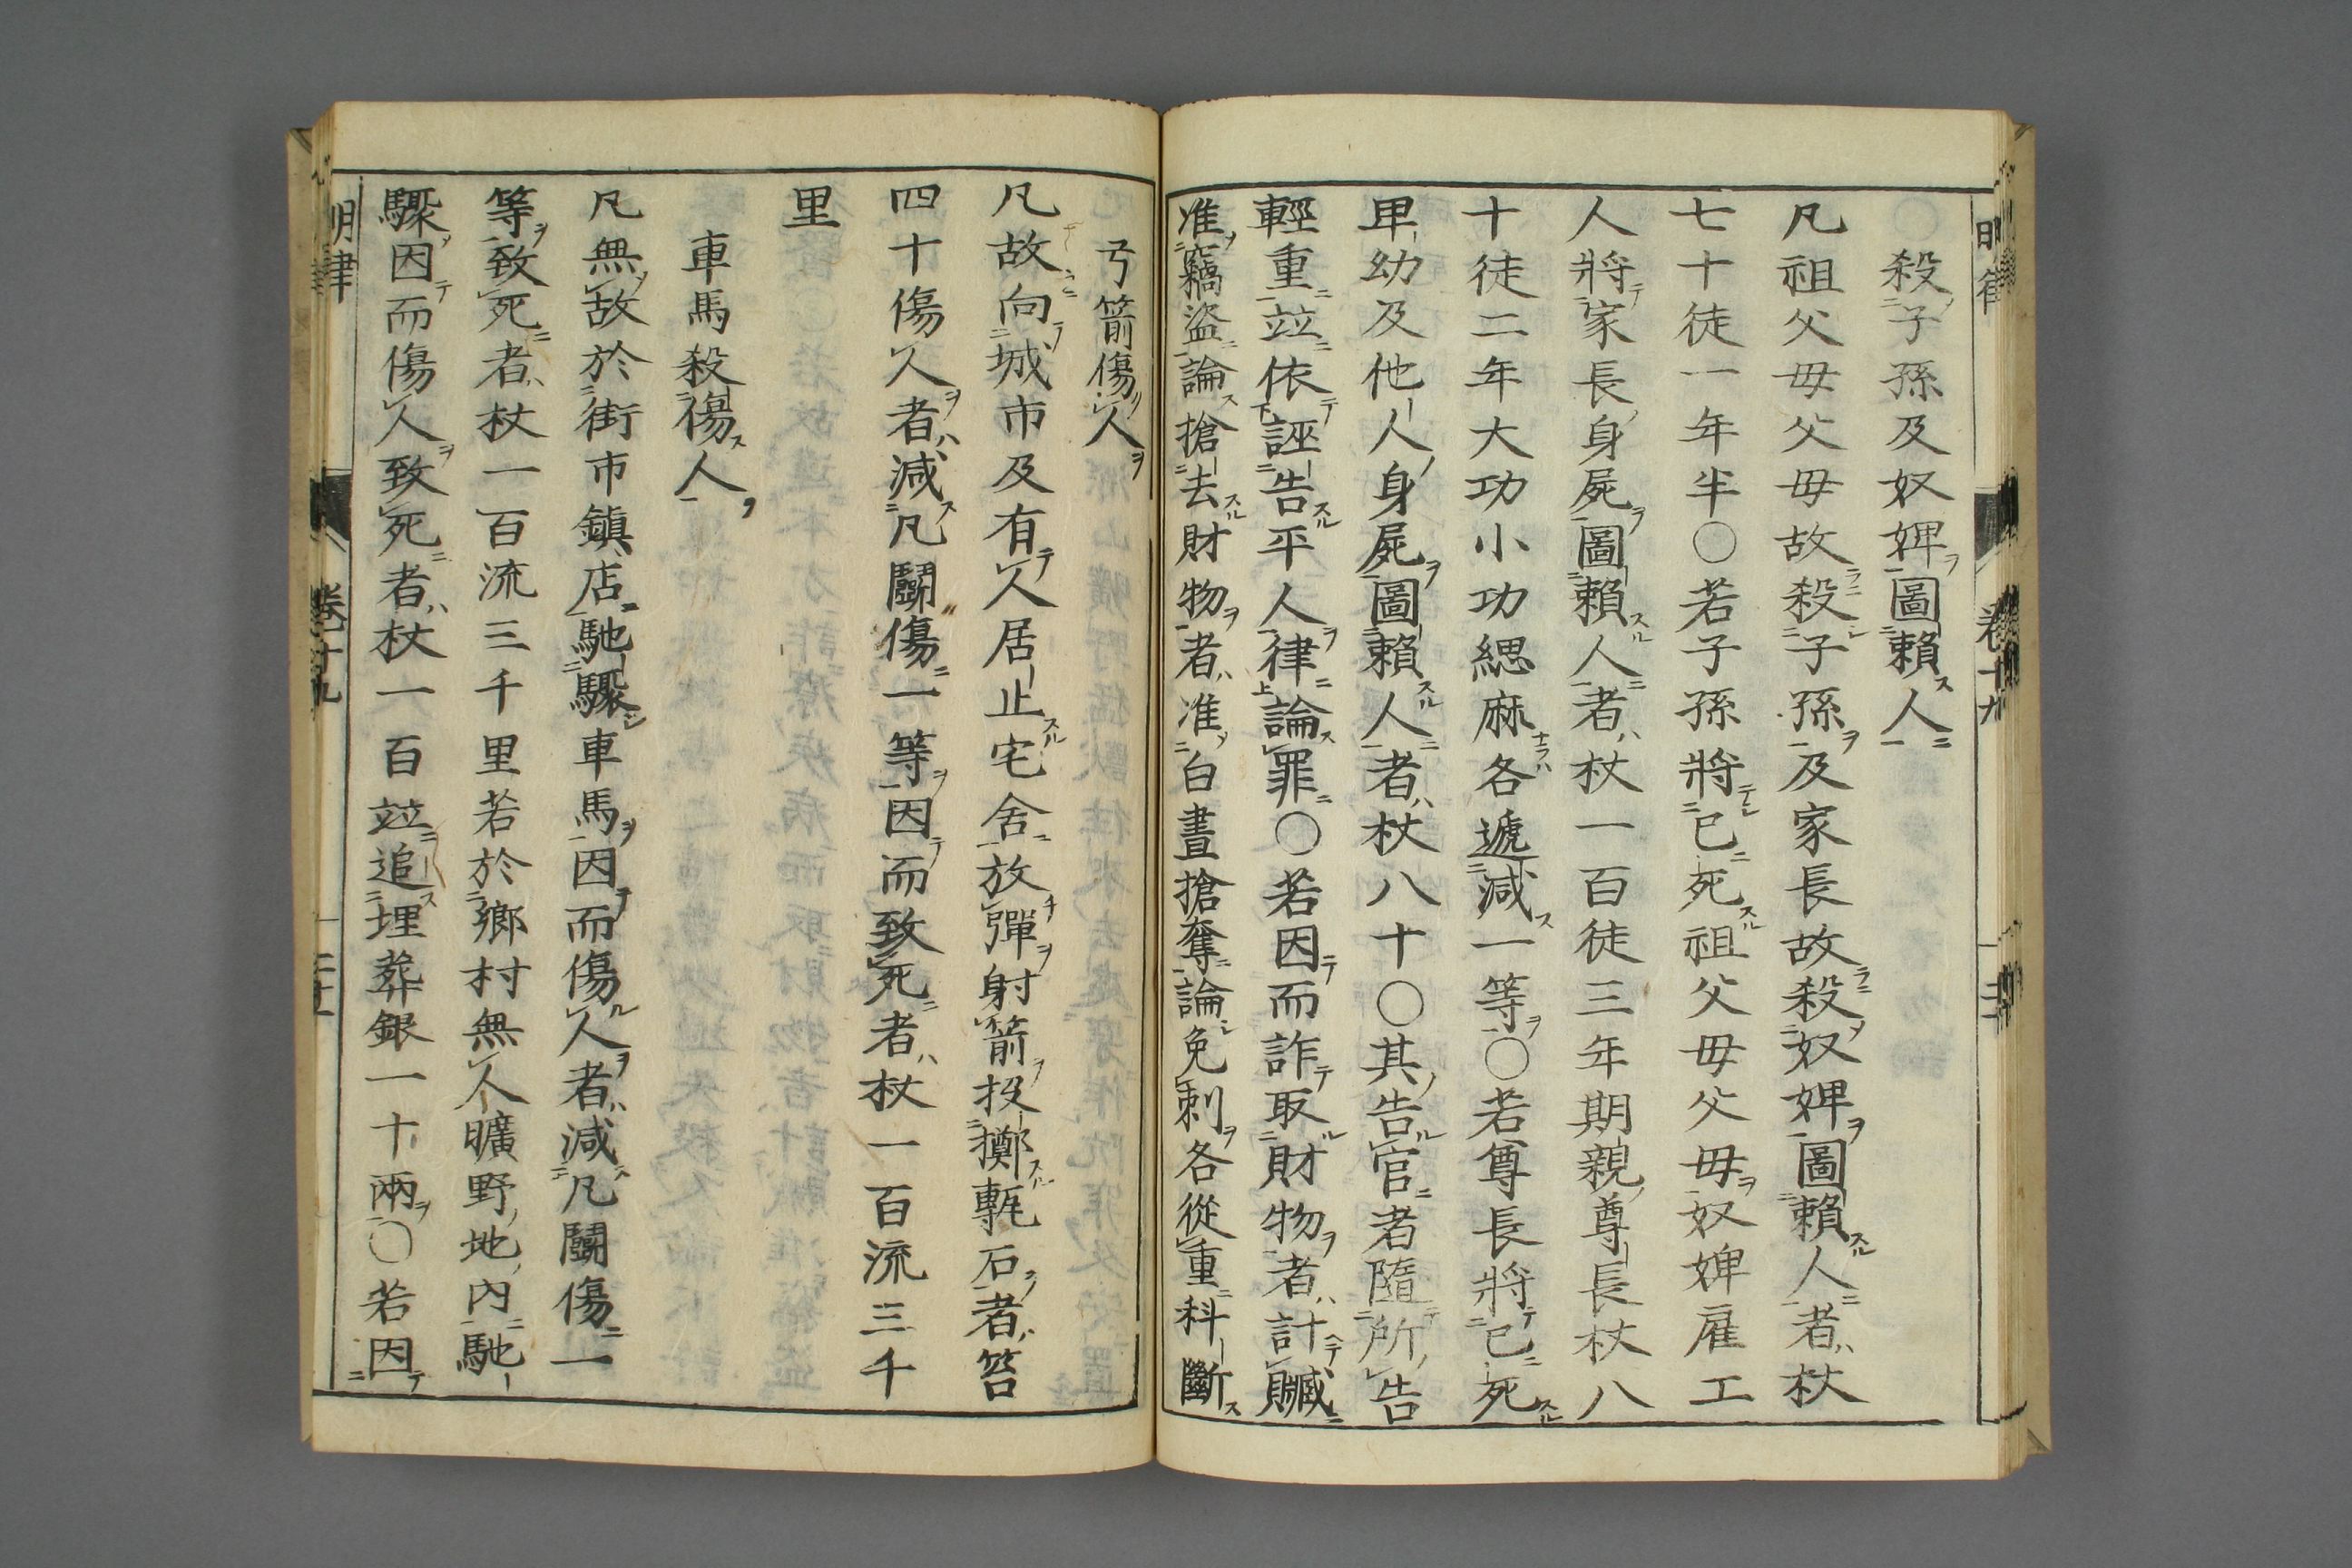 殺子孫及奴婢圖賴人
凡祖父母父母故殺子孫及家長故殺奴婢圖賴人者杖
七十徒一年半○若子孫將已死祖父母父母奴婢雇工
人將家長身屍圖賴人者杖一百徒三年期親尊長杖八
十徒二年大功小功緦麻各遞減一等○若尊長將已死
卑幼及他人身屍圖賴人者杖八十○其告官者隨所告
輕重竝依誣告平人律論罪○若因而詐取財物者計贓
准竊盜論搶去財物者准白晝搶奪論免刺各從重科斷
弓箭傷人
凡故向城市及有人居止宅舍放彈射箭投擲甎石者笞
四十傷人者減凡鬭傷一等因而致死者杖一百流三千
里
車馬殺傷人
凡無故於街市鎮店馳驟車馬因而傷人者減凡鬭傷一
等致死者杖一百流三千里若於鄉村無人曠野地內馳
驟因而傷人致死者杖一百竝追埋葬銀一十兩○若因
明律 卷十九